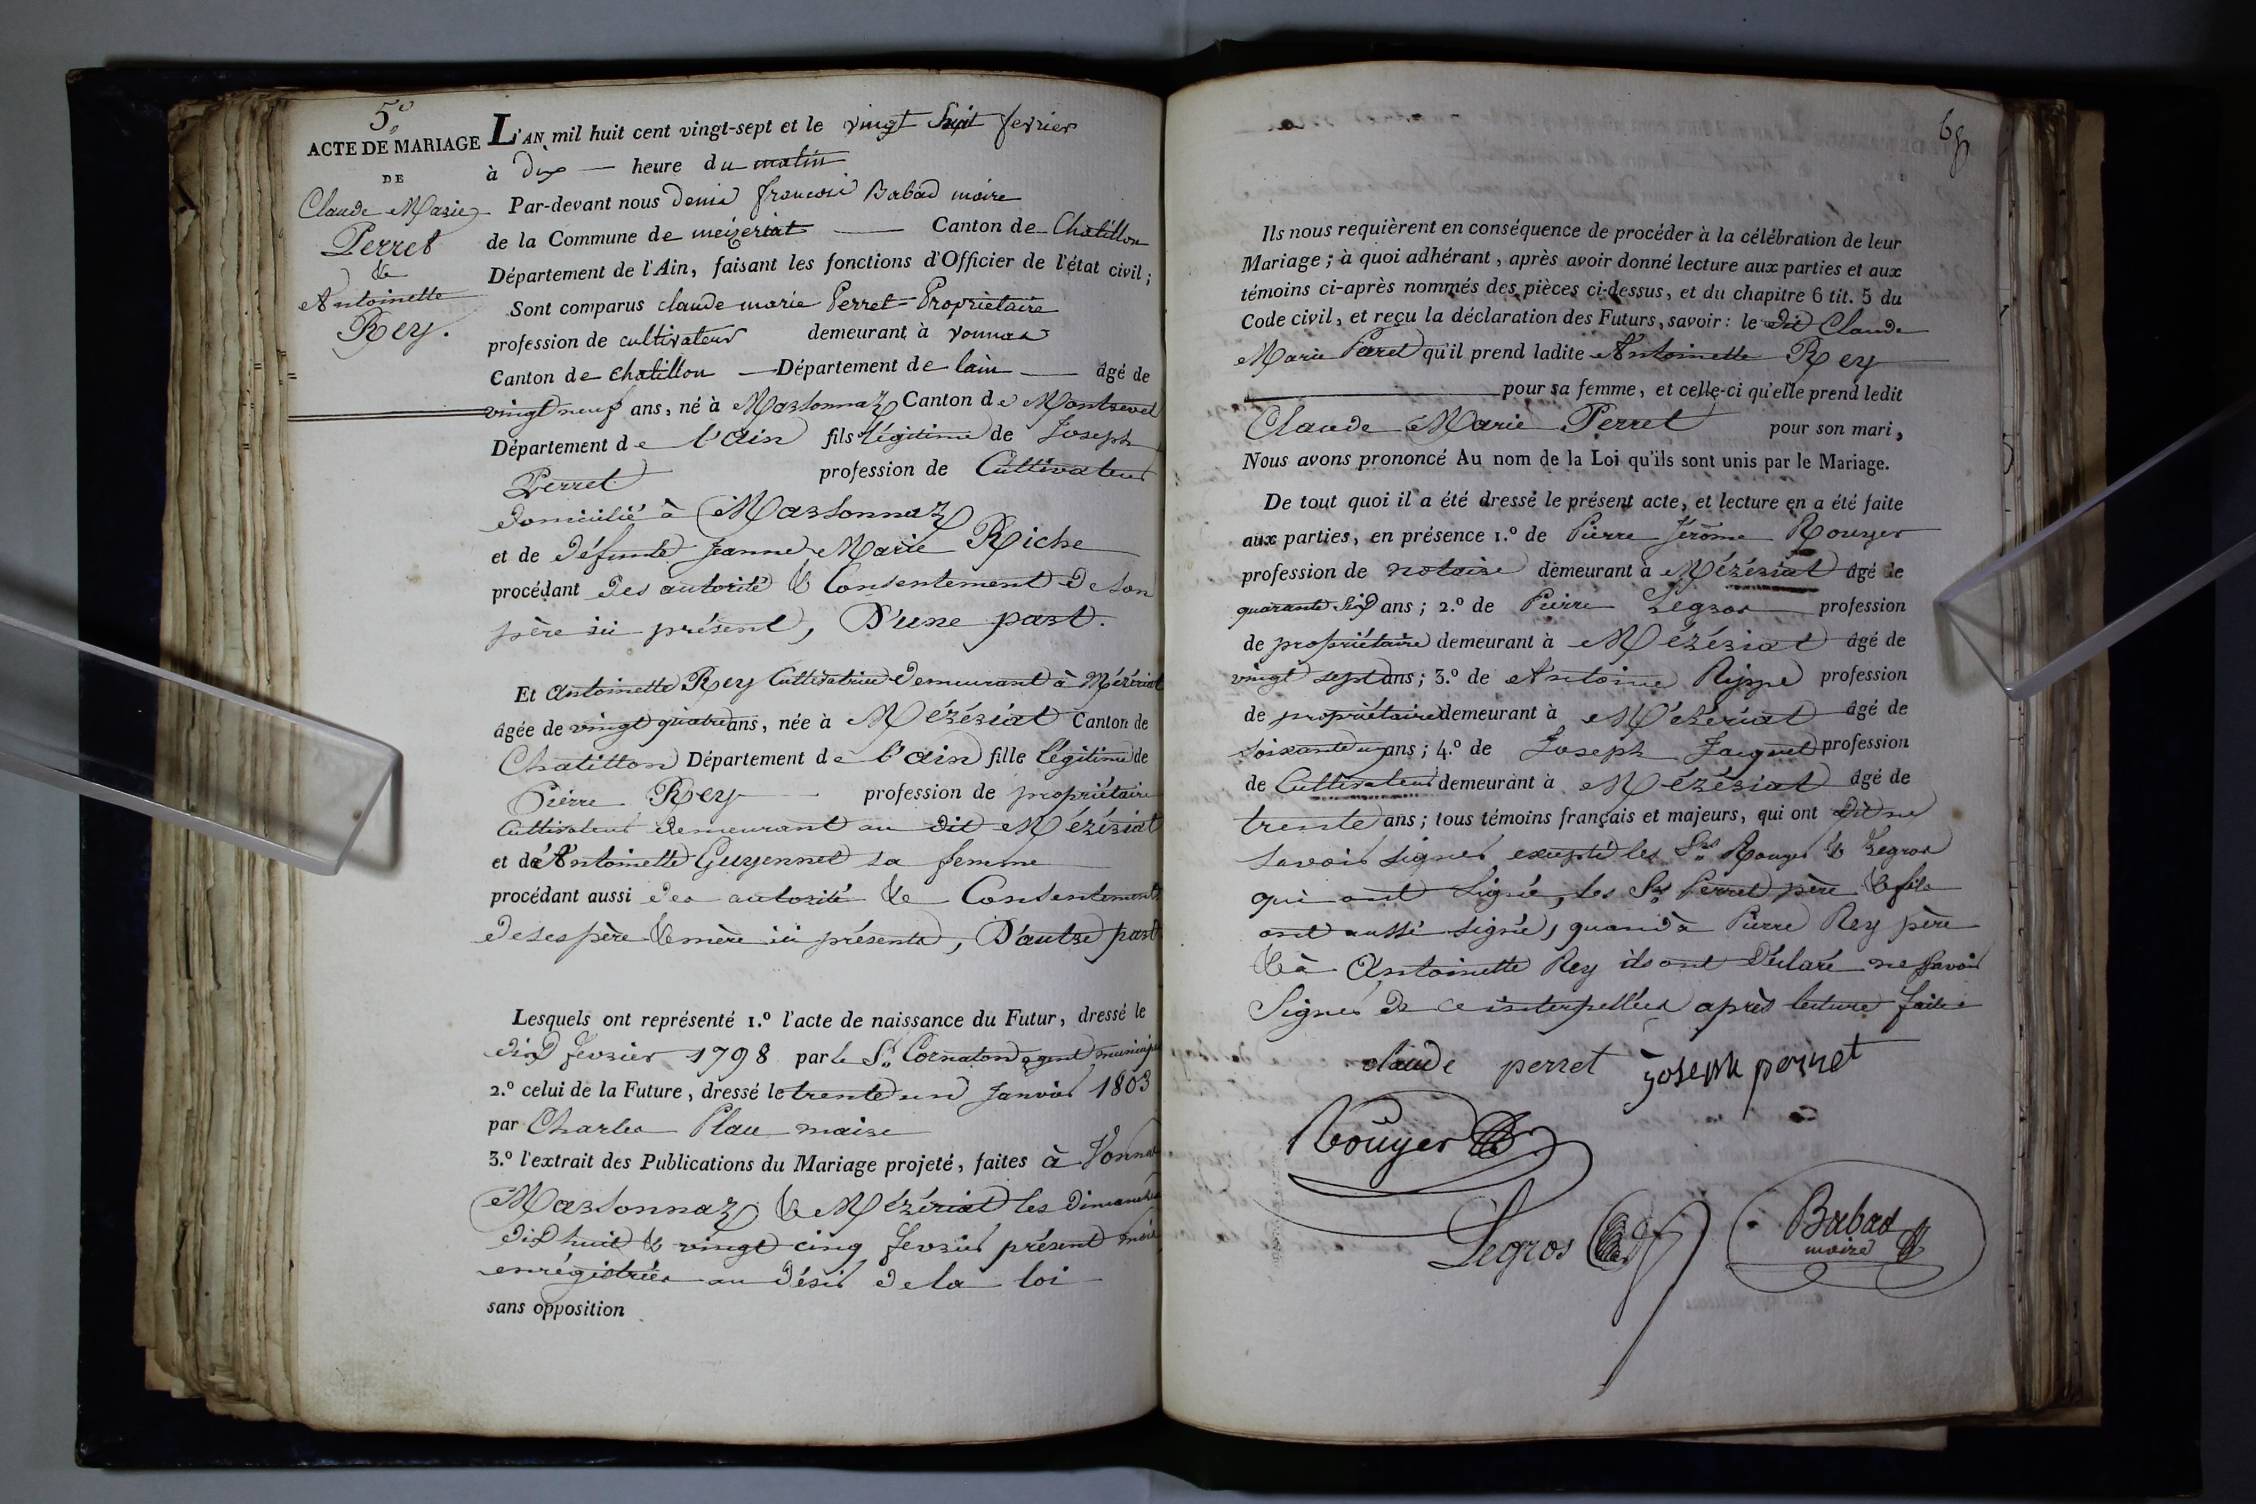 5e
ACTE DE MARIAGE
DE
Claude Marie
Perret
&
Antoinette
Rey.
L'AN mil huit cent vingt-sept et le vingt Sept fevrier
à dix heure du matin
Par-devant nous denis francois Babad maire
de la Commune de meizeriat Canton de Chatillon
Département de l'Ain, faisant les fonctions d'Officier de l'état civil;
Sont comparus claude marie Perret Propriétaire
profession de cultivateur demeurant à vonnas
Canton de chatillon Département de lain âgé de
vingt neuf ans, né à Marsonnaz Canton de Montrevel
Département de l'ain fils légitime de Joseph
Perret profession de Cultivateur
domicilié à Marsonnaz
et de défunte Jeanne Marie Riche
procédant des autorité & Consentement de son
père ici présent, D'une part.
Et Antoinette Rey Cultivatrice demeurant à Mézériat
âgée de vingt quatre ans, née à Mézériat Canton de
Chatillon Département de l'ain fille légitime de
Pierre Rey profession de propriétaire
Cultivateur demeurant au dit Mézériat
et de Antoinette Guyennet sa femme
procédant aussi des autorité & Consentement
de ses père & mère ici présents, D'autre part
Lesquels ont représenté 1.º l'acte de naissance du Futur, dressé le
dix fevrier 1798 par le Sr. Cornaton agent municipal
2.º celui de la Future, dressé le trente un Janvier 1803
par Charles Plau maire
3.º l'extrait des Publications du Mariage projeté, faites à Vonnas
Marsonnaz & Mézériat les dimanches
dix huit & vingt cinq fevrier présent mois
enrégistrées au désir de la loi
sans opposition
68
Ils nous requièrent en conséquence de procéder à la célébration de leur
Mariage; à quoi adhérant, après avoir donné lecture aux parties et aux
témoins ci-après nommés des pièces ci-dessus, et du chapitre 6 tit. 5 du
Code civil, et reçu la déclaration des Futurs, savoir: le dit Claude
Marie Perret qu'il prend ladite Antoinette Rey
pour sa femme, et celle-ci qu'elle prend ledit
Claude Marie Perret pour son mari,
Nous avons prononcé Au nom de la Loi qu'ils sont unis par le Mariage.
De tout quoi il a été dressé le présent acte, et lecture en a été faite
aux parties, en présence 1.º de Pierre Jérôme Rouyer
profession de notaire demeurant à Mézériat âgé de
quarante six ans; 2.º de Pierre Legros profession
de propriétaire demeurant à Mézériat âgé de
vingt sept ans; 3.º de Antoine Rippe profession
de propriétaire demeurant à Mézériat âgé de
soixante un ans; 4.º de Joseph Jacquet profession
de Cultivateur demeurant à Mézériat âgé de
trente ans; tous témoins français et majeurs, qui ont dit ne
savoir signer excepté les Srs. Rouyer & Legros
qui ont signé, les Srs. Perret père & fils
ont aussi signé, quand à Pierre Rey père
& à Antoinette Rey ils ont déclaré ne savoir
signer de ce interpellés après lecture faite
claude perret joseph perret
Rouyer
Legros
Babad
maire